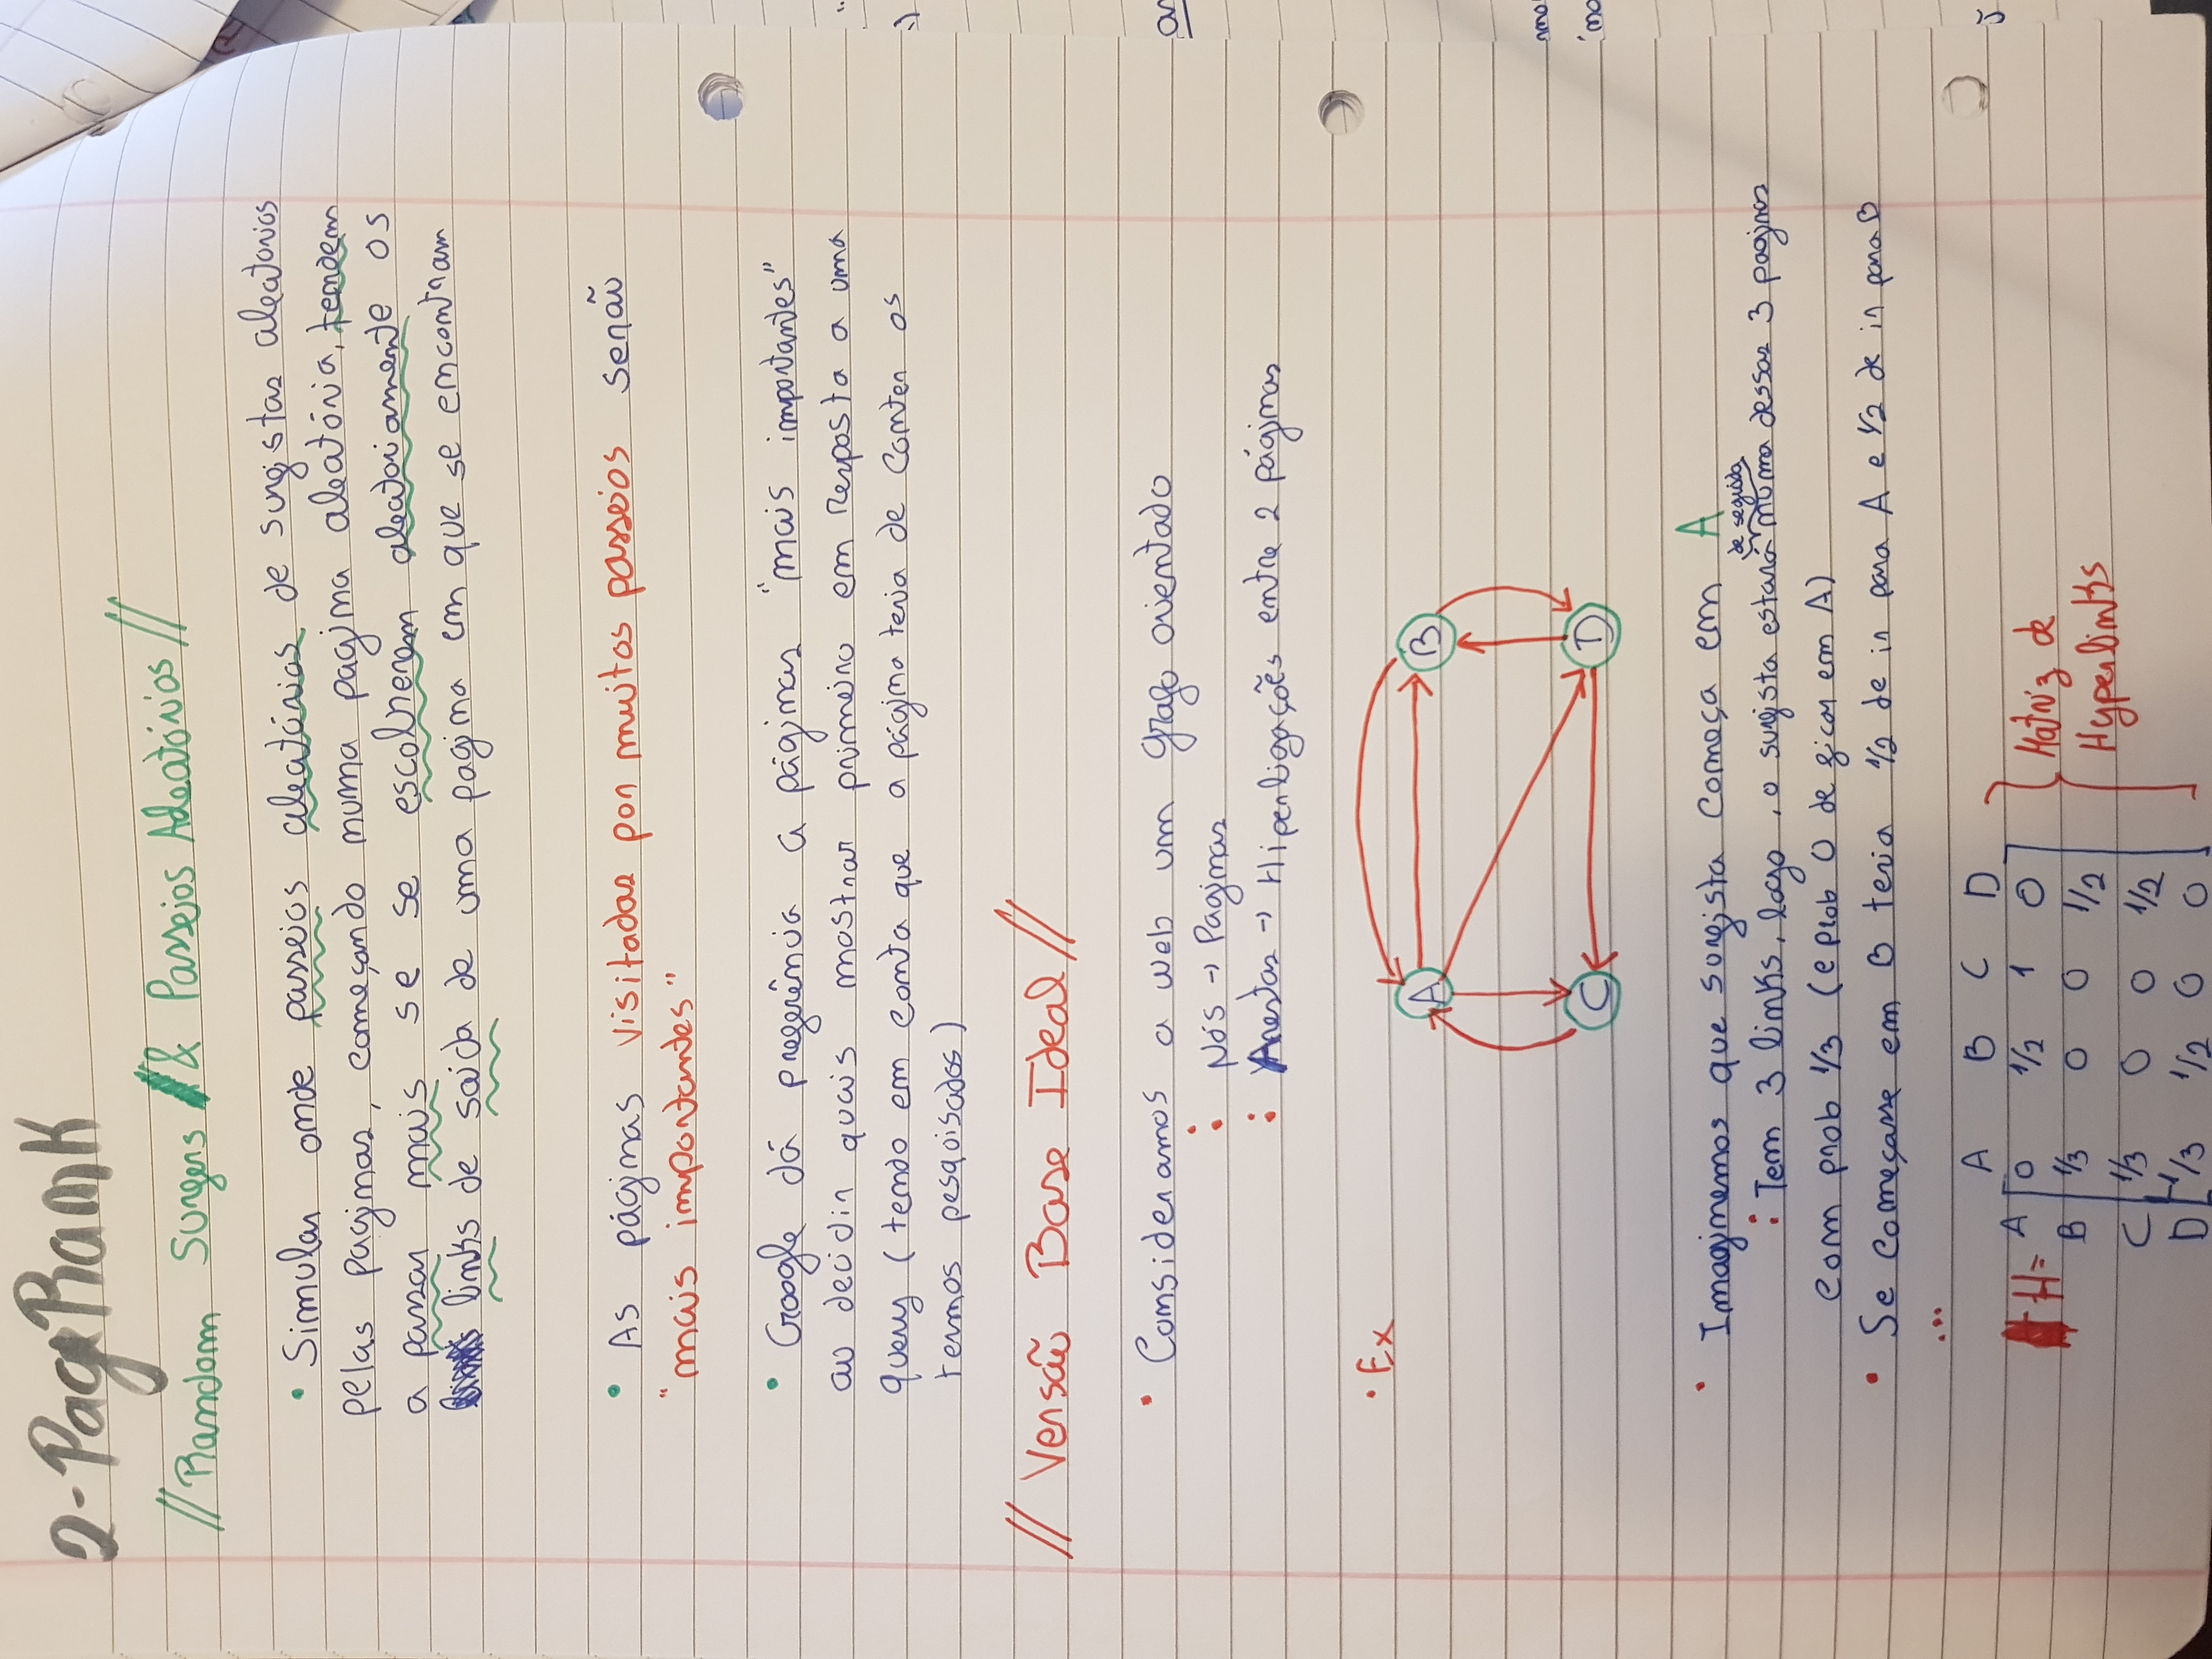 2-PageRank
// Random Surfers & Passeios Aleatórios //
• Simular onde passeios aleatórios de surfistas aleatorios
pelas paginas, começando numa pagina aleatória, tendem
a passar mais se se escolherem aleatoriamente os
links de saida de uma pagina em que se encontram
• As páginas visitadas por muitos passeios serão
"mais importantes"
• Google dá preferência a páginas "mais importantes"
ao decidir quais mostrar primeiro em resposta a uma
query (tendo em conta que a página teria de conter os
termos pesquisados)
// Versão Base Ideal //
• Consideramos a web um grafo orientado
: Nós → Paginas
: Arestas → Hiperligações entre 2 páginas
• Ex
A B
C D
• Imaginemos que surfista começa em A
de seguida
: Tem 3 links, logo, o surfista estará numa dessas 3 paginas
com prob 1/3 (e prob 0 de ficar em A)
• Se começasse em B teria 1/2 de ir para A e 1/2 de ir para B
...
A B C D
H= A 0 1/2 1 0
B 1/3 0 0 1/2
C 1/3 0 0 1/2
D 1/3 1/2 0 0
Matriz de
Hyperlinks